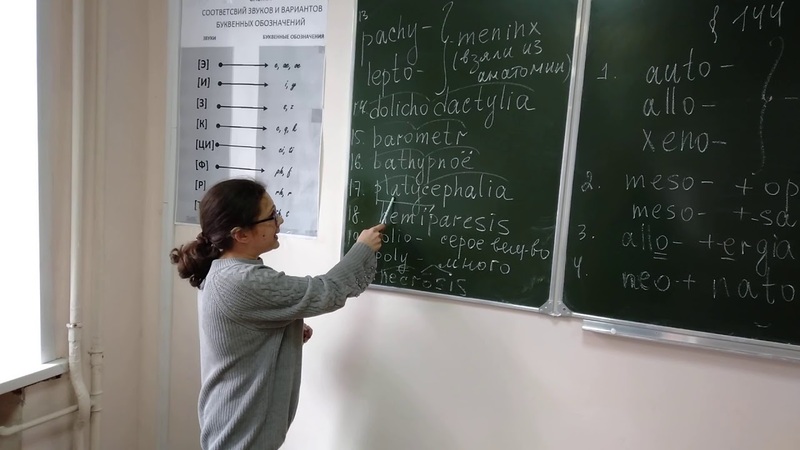 СООТВЕТСВИЙ ЗВУКОВ И ВАРИАНТОВ
БУКВЕННЫХ ОБОЗНАЧЕНИЙ
ЗВУКИ БУКВЕННЫЕ ОБОЗНАЧЕНИЯ
[Э] e, ae, oe
[И] i, y
[З] s, z
[К] c, q, k
[ЦИ] ci, ti
[Ф] ph, f
[Р] rh, r
13
pachy- { meninx
lepto- (взяли из
анатомии)
14. dolichodactylia
15. barometr
16. bathypnoë
17. platycephalia
18. hemiparesis
polio- серое вещ-во
poly много
necrosis
{ 144
1. auto-
allo-
xeno-
2. meso- + op
meso- + sa
3. allo- + ergia
4. neo- + nato